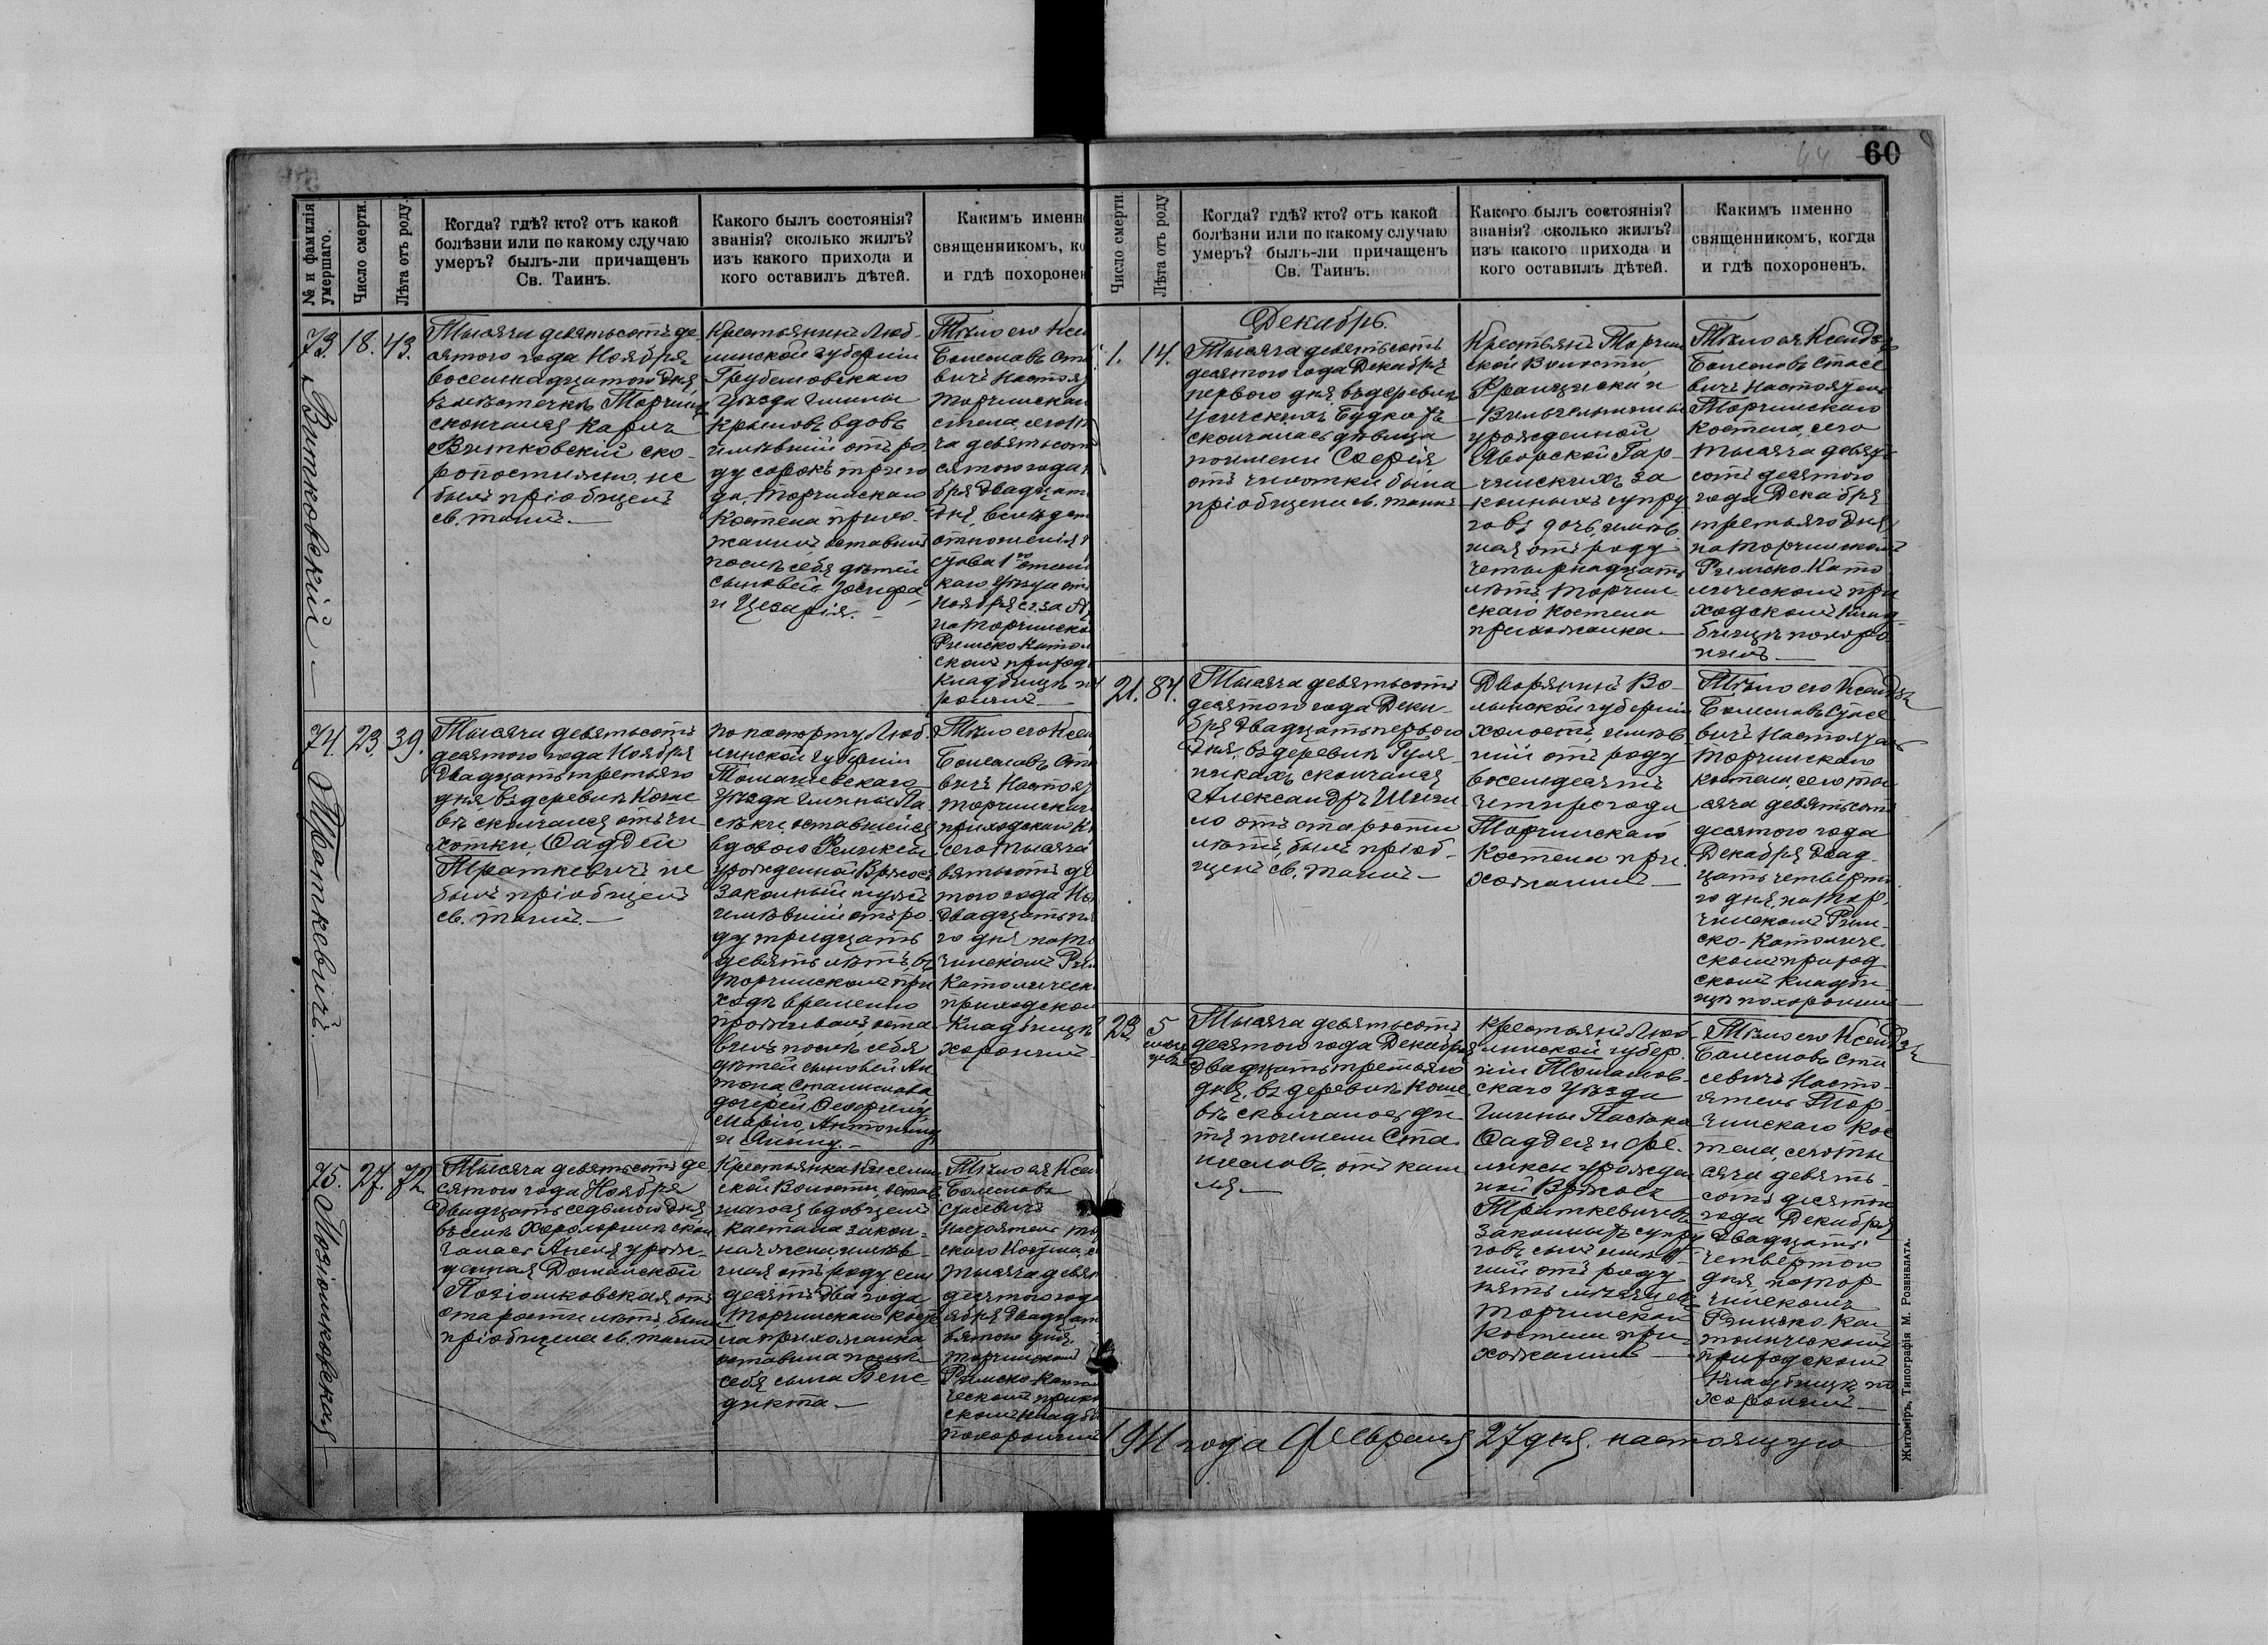 60
44
№ и фамилія умершаго.
Число смерти.
Лѣта отъ роду.
Когда? гдѣ? кто? отъ какой
болѣзни или по какому случаю
умеръ? былъ-ли причащенъ
Св. Таинъ.
Какого былъ состоянія?
званія? сколько жилъ?
изъ какого прихода и
кого оставилъ дѣтей.
Какимъ именн
священникомъ, ко
и гдѣ похоронен
73. Витковскій
18.
43.
Тысяча девятьсотъ де-
сятого года Ноября
восемнадцатого дня,
въ мѣстечкѣ Торчинѣ
скончался Карлъ
Витковскій ско-
ропостижно, не
былъ пріобщенъ
св. таинъ.
Крестьянинъ Люб-
линской губерніи
Грубешовскаго
уѣзда гмины
Крыловъ вдовъ
имѣвшій отъ ро-
ду сорокъ три го
да, Торчинскаго
Костела прихо-
жанинъ, оставилъ
послѣ себя дѣтей
сыновей Іосифа
и Цезарія.
Тѣло его Ксен
Болеславъ Ста
вичъ Настоя
Торчинскаг
стела, сего т
ча девятьсот
сятого года
бря двадцат
дня, вслѣдст
отношенія
става 1го стан
каго уѣзда от
Ноября с. г. за №
на Торчинско
Римско-Катол
скомъ приход
кладбищѣ по
ронилъ
74.
23.
39.
Тысяча девятьсотъ
десятого года Ноября
двадцать третьяго
дня въ деревнѣ Коше
вѣ скончался отъ ча
хотки, Фаддей
Траткевичъ не
былъ пріобщенъ
св. таинъ.
по паспорту Люб-
линской губерніи
Томашевскаго
уѣзда гмины Па
сѣки, оставшейся
вдовою Феликсы
урожденной Вржосъ
законный мужъ
имѣвшій отъ ро-
ду тридцать
девять лѣтъ, въ
Торчинскомъ при
ходѣ временно
проживалъ, оста
вилъ послѣ себя
дѣтей сыновей Ан
тона Станислава
дочерей
Марію, Антонину
и Анну.
Тѣло его Ксен
Болеславъ Ста
вичъ Настоя
Торчинскаг
приходскаго К
сего тысяча
вятьсотъ де
того года Но
двадцать пя
го дня на То
чинскомъ Рим
Католическ
приходском
кладбищѣ
хоронилъ
75.
27.
72.
Тысяча девятьсотъ де
сятого года Ноября
двадцать седьмого дня
въ селѣ Хорохоринѣ скон
чалась Анеля урож-
денная Доманской
отъ
старости лѣтъ, была
пріобщена св. таинъ
Крестьянка Киселин
ской Волости, остав
шагося вдовцемъ
Каетана закон-
ная жена, имѣв-
шая отъ роду семь
десятъ два года
Торчинскаго Косте
ла прихожанка
оставила послѣ
себя сына Бене-
дикта.
Тѣло ея Ксен
Болеславъ
Стасевичъ
Настоятель То
скаго Костела, с
тысяча девя
десятого года
ября двадцат
вятого дня,
Торчинскомъ
Римско-Катол
ческомъ прихо
скомъ кладби
похоронилъ
Число смерти.
Лѣта отъ роду.
Когда? гдѣ? кто? отъ какой
болѣзни или по какому случаю
умеръ? былъ-ли причащенъ
Св. Таинъ.
Какого былъ состоянія?
званія? сколько жилъ?
изъ какого прихода и
кого оставилъ дѣтей.
Какимъ именно
священникомъ, когда
и гдѣ похороненъ.
Декабрь.
1.
14.
Тысяча девятьсотъ
десятого года Декабря
первого дня, въ деревнѣ
Усичскихъ Будкахъ
скончалась дѣвица
по имени Софія
отъ чахотки была
пріобщена св. таинъ
Крестьянъ Торчин
ской Волости,
Франциска и
Вильгельмины
урожденной
Яворской Гар-
чинскихъ за
конныхъ супру
говъ дочь, имѣв
шая отъ роду
четырнадцать
лѣтъ Торчин-
скаго Костела
прихожанка.
Тѣло ея Ксендзъ
Болеславъ Стасе
вичъ Настоятель
Торчинскаго
Костела, сего
тысяча девять
сотъ десятого
года Декабря
третьяго дня
на Торчинскомъ
Римско-Като
лическомъ при
ходскомъ клад-
бищѣ похоро-
нилъ
21.
84.
Тысяча девятьсотъ
десятого года Дека-
бря двадцать первого
дня, въ деревнѣ Гуля-
никахъ скончался
Александръ Шиги-
ло отъ старости
лѣтъ, былъ пріоб-
щенъ св. таинъ
Дворянинъ Во-
лынской губерніи
холостъ, имѣв
шій отъ роду
восемдесятъ
четыре года
Торчинскаго
Костела при-
хожанинъ
Тѣло его Ксендзъ
Болеславъ Стасе
вичъ Настоятель
Торчинскаго
Костела, сего ты
сяча девятьсотъ
десятого года
Декабря двад-
цать четверта
го дня, на Тор-
чинскомъ Рим-
ско-Католиче-
скомъ приход
скомъ кладби
щѣ похоронилъ
23.
5
мѣся
цевъ
Тысяча девятьсотъ
десятого года Декабря
двадцать третьяго
дня, въ деревнѣ Коше
вѣ скончалось ди-
тя по имени Ста-
ниславъ, отъ каш
ля.
Крестьянъ Люб-
линской губер-
ніи Томашов-
скаго уѣзда
Гмины Пасѣка
Фаддея и Фе-
ликсы урожден
ной Вржосъ
Траткевичевъ
законныхъ супру
говъ сынъ имѣв
шій отъ роду
пять мѣсяцевъ
Торчинскаго
Костела при-
хожанинъ
Тѣло его Ксендзъ
Болеславъ Ста
севичъ Насто-
ятель Тор-
чинскаго Кос
тела, сего ты
сяча девять-
сотъ десятого
года Декабря
двадцать
четвертого
дня, на Тор-
чинскомъ
Римско-Ка-
толическомъ
приходскомъ
кладбищѣ по
хоронилъ
1911 года Февраля 27 дня. настоящую
Житоміръ, Типографія М. Розенблата.